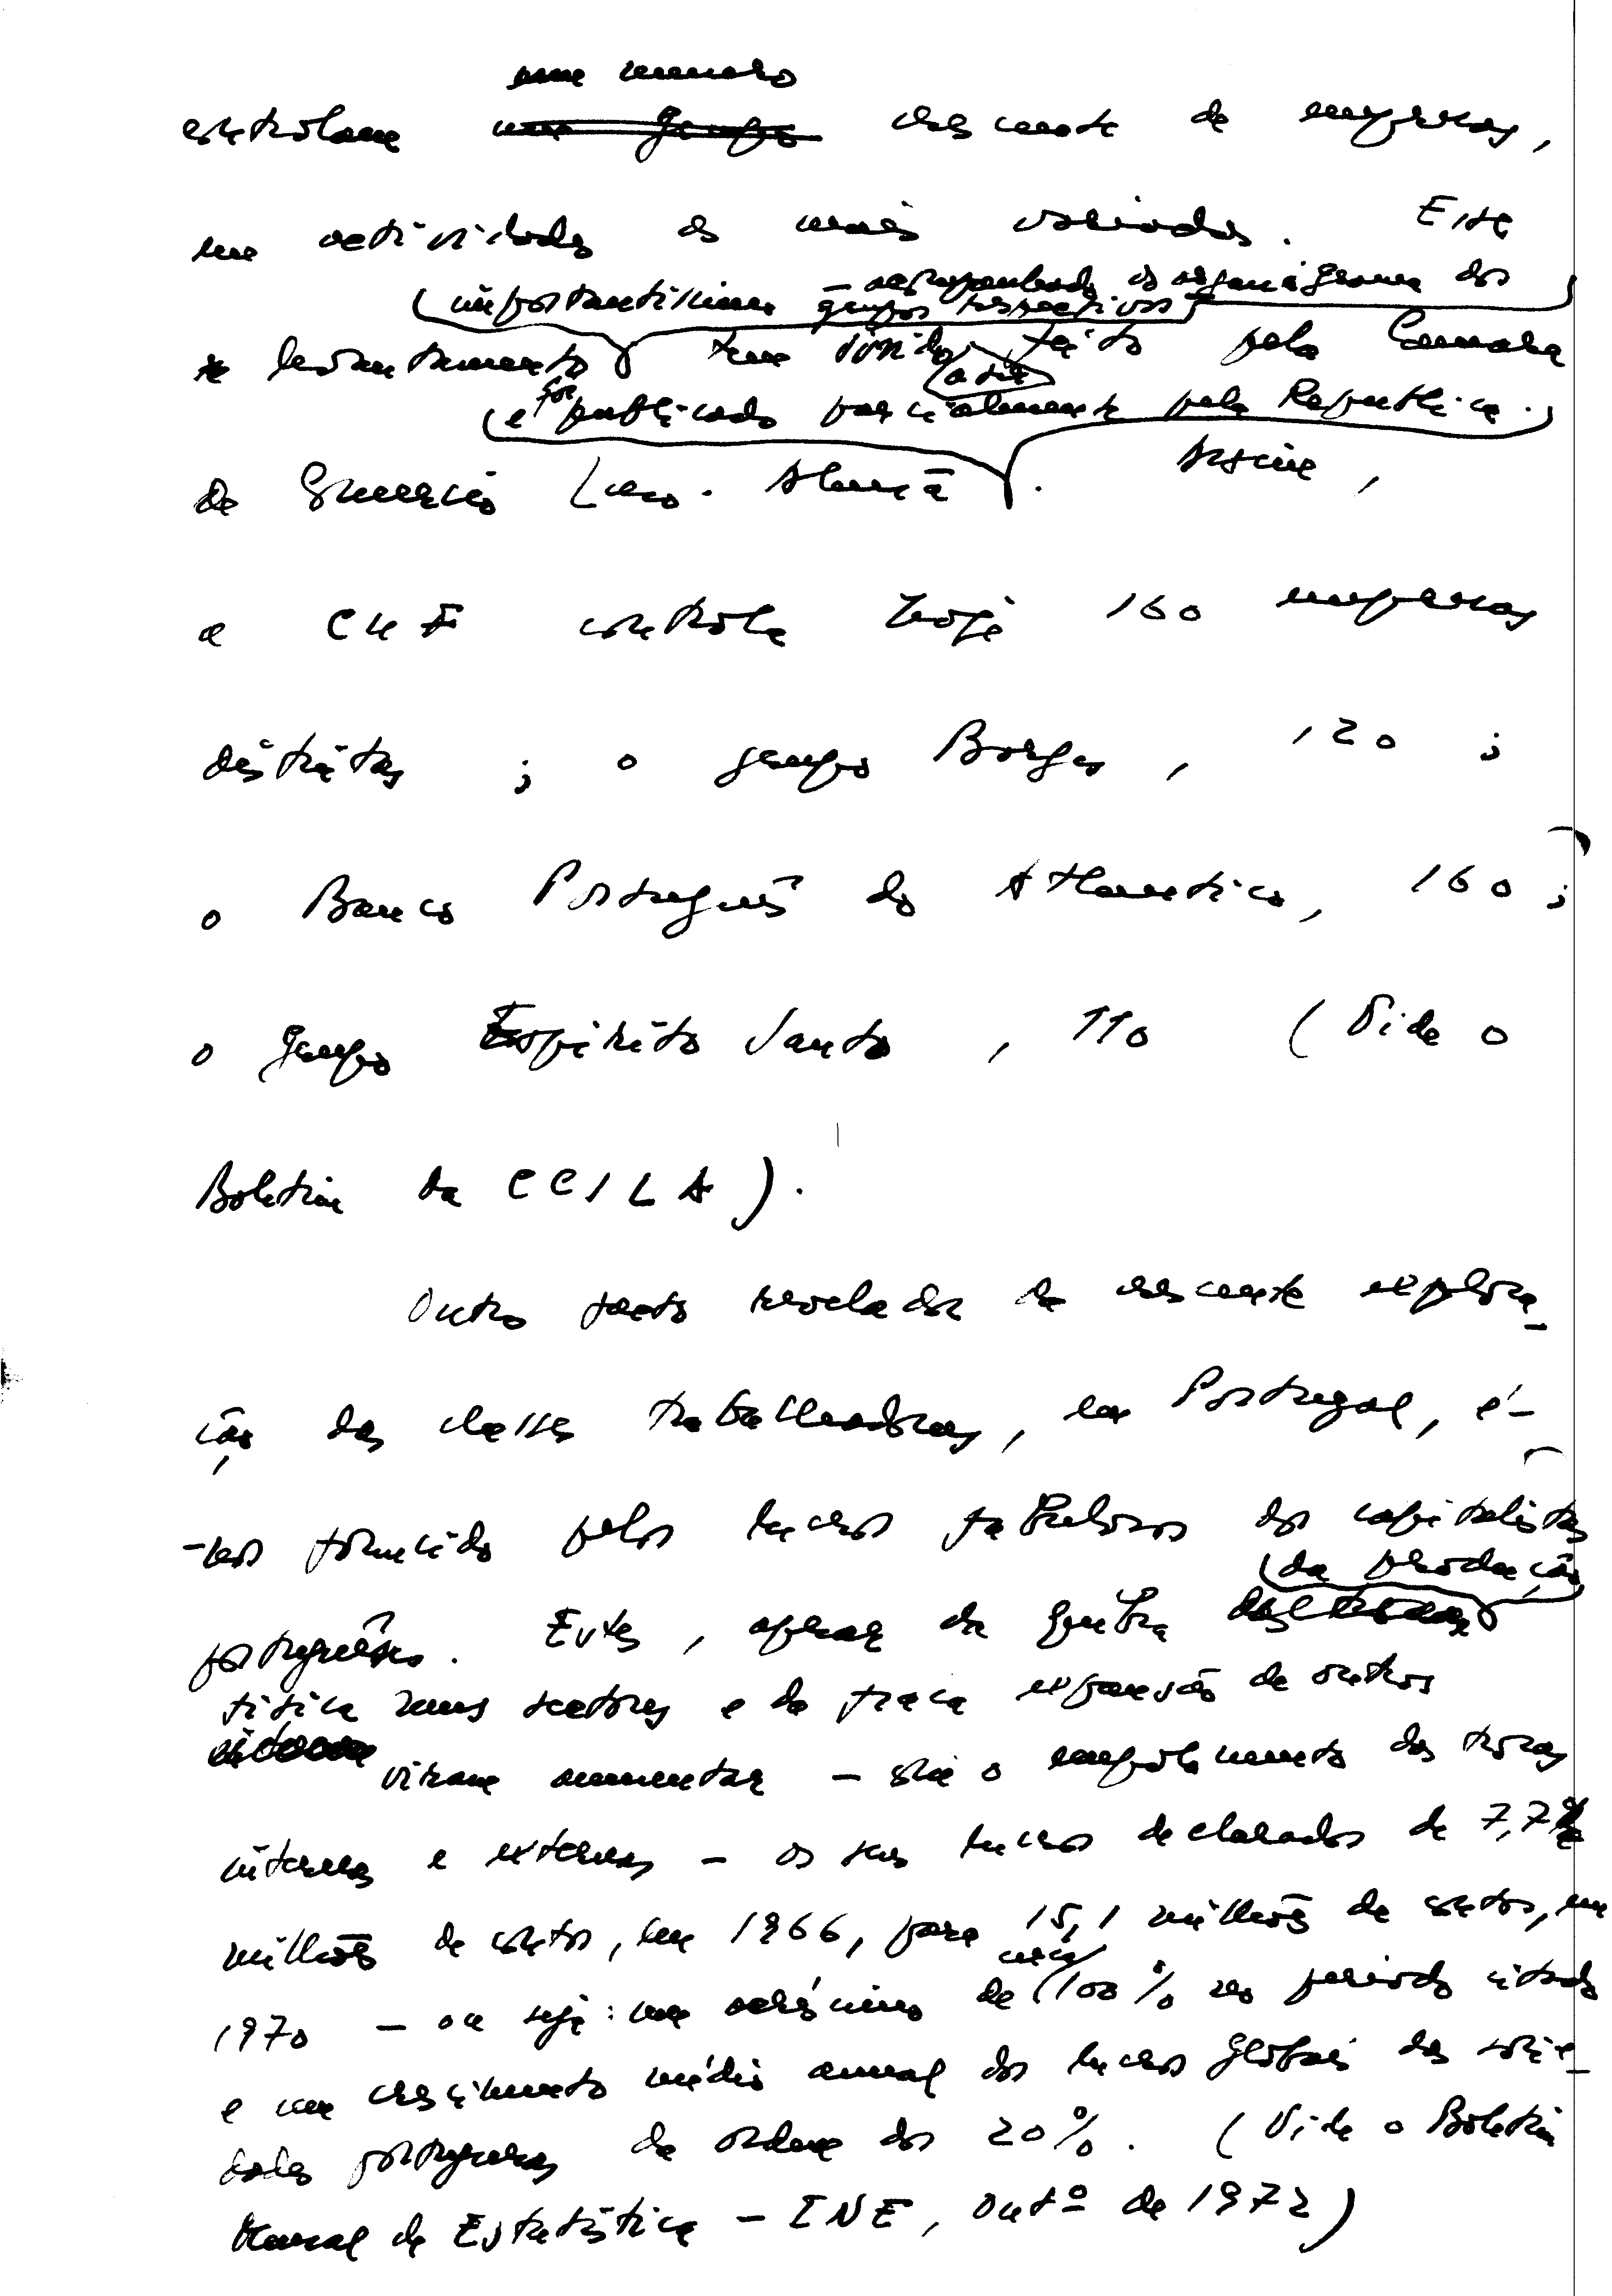 um número
controlam um grupo crescente de empresas,
em actividades as mais variadas. Este
importantíssimo – acompanhado do organigrama dos
grupos respectivos –
levantamento tem vindo a ser feito pela Câmara
e foi publicado parcialmente pela República.
de Comércio Luso-Alemã. Assim,
a CUF controla hoje 160 empresas
distintas; o grupo Borges, 120;
o Banco Português do Atlântico, 160;
o grupo Espírito Santo, 110 (Vide o
Boletim da CCILA).
Outro facto revelador da crescente explora-
ção das classes trabalhadoras, em Portugal, é-
-nos fornecido pelos lucros fabulosos dos capitalistas
portugueses. Estes, apesar da quebra da produção
física nuns sectores e da fraca expansão de outros
viram aumentar – com o empolamento das trocas
internas e externas – os seus lucros declarados de 7,7
milhões de contos, em 1966, para 15,1 milhões de contos, em
1970 – ou seja: um acréscimo de cerca 100% no período citado
e um crescimento médio anual dos lucros globais das socie-
dades portuguesas da ordem dos 20%. (Vide o Boletim
Mensal de Estatística – INE, Outº de 1972)